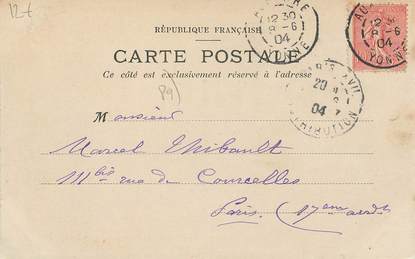 12-t
RÉPUBLIQUE FRANÇAISE
CARTE POSTALE
Ce côté est exclusivement réservé à l'adresse
(89)
12 30
8 -6
04
YONNE
12 30
8 -6
04
YONNE
PARIS XVII
20
04
DISTRIBUTION
Monsieur
Marcel Thibault
111bis rue de Courcelles
Paris. 17eme arrdt